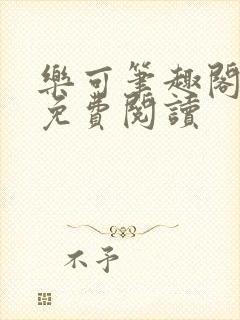 樂可筆趣閣
免費閱讀
不予